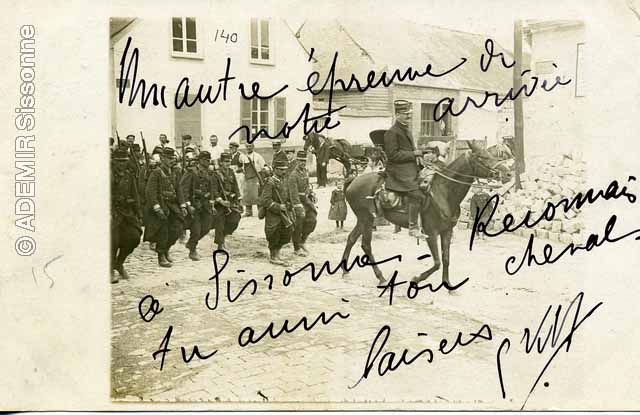 140
Une autre épreuve de
notre arrivée
à Sissonne Reconnais
tu aussi ton cheval
baisers
© ADEMIR Sissonne
15